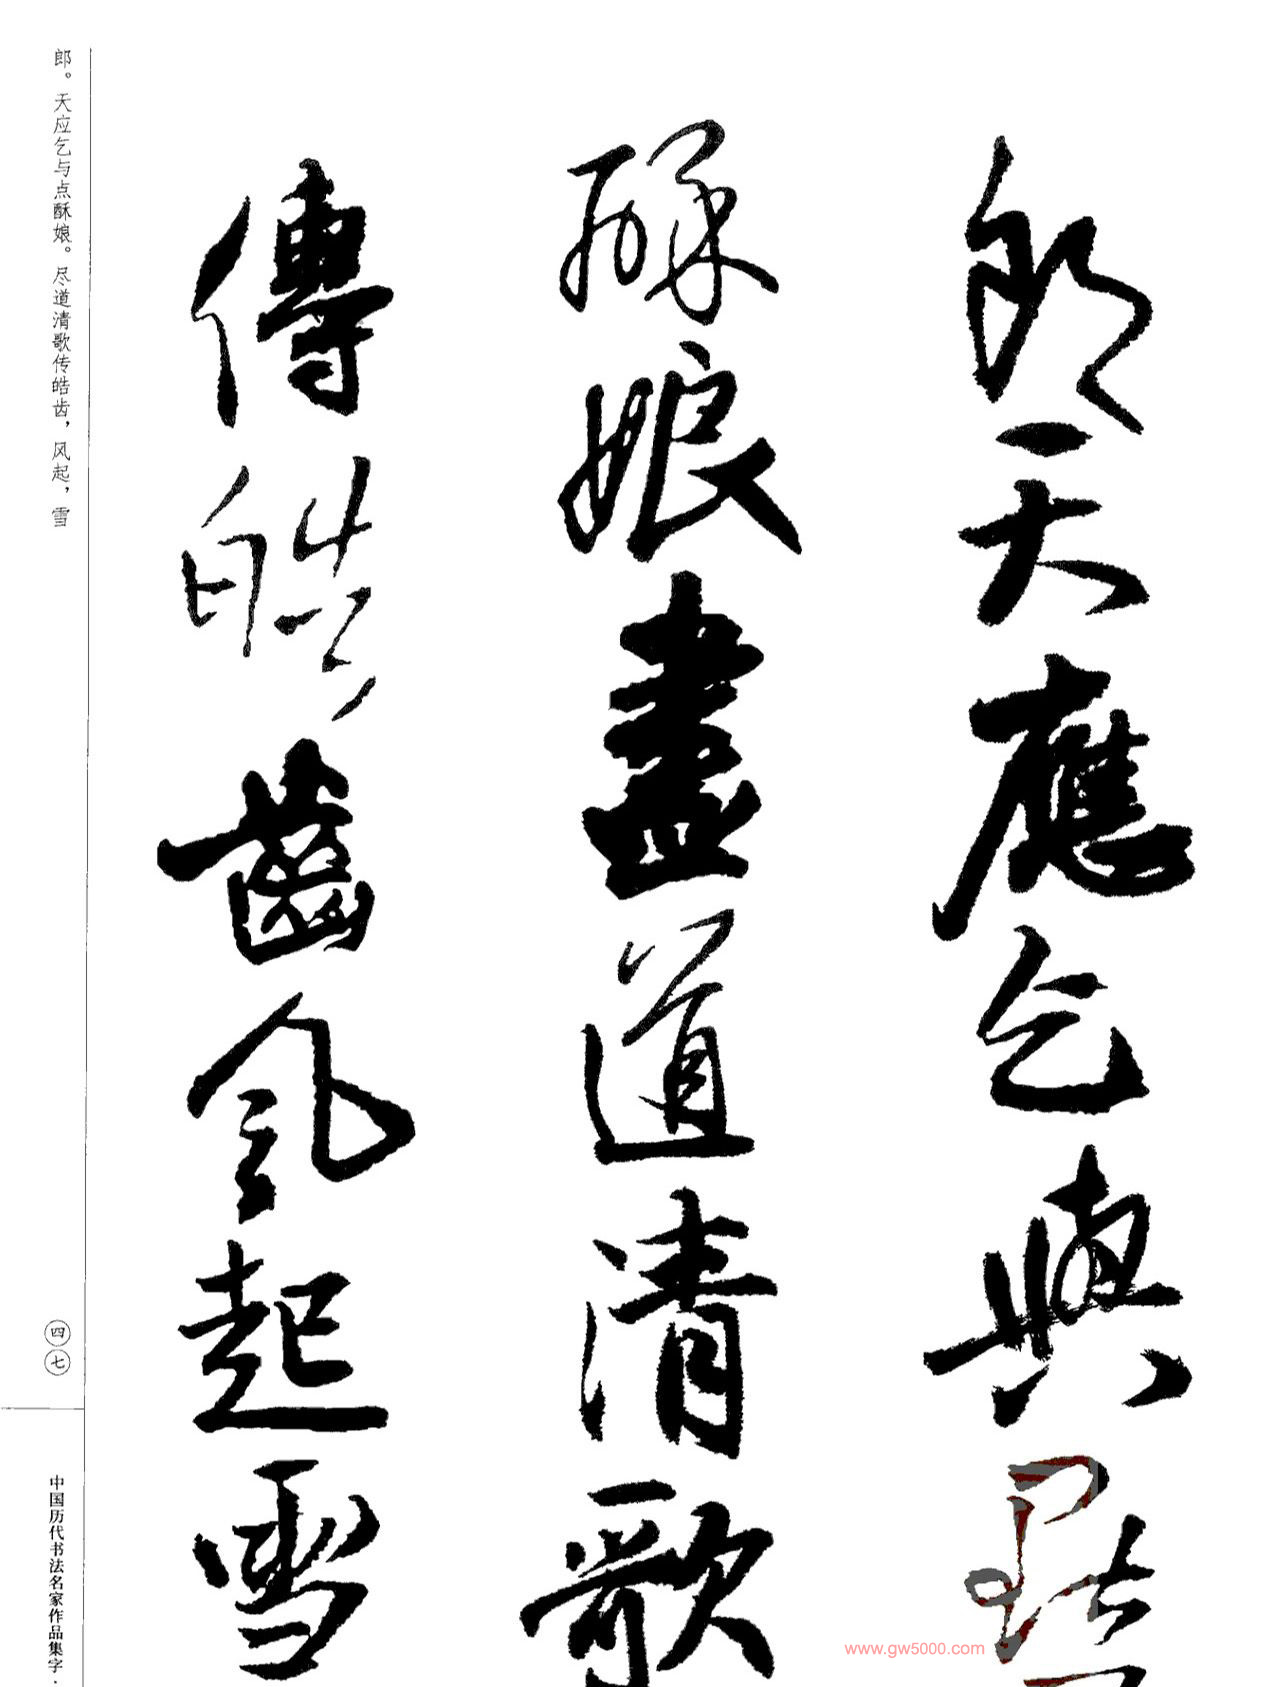 郎天應乞與點
酥娘盡道清歌
傳皓齒風起雪
郎。天应乞与点酥娘。尽道清歌传皓齿，风起，雪
四七
中国历代书法名家作品集字·
www.gw5000.com